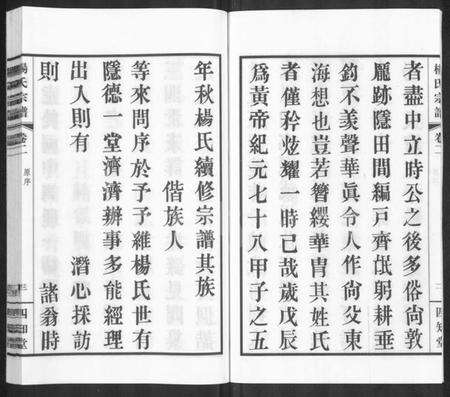 楊氏宗譜
卷二
三
四知堂
者盡中立時公之後多俗尙敦
龐跡隱田間編戶齊氓躬耕垂
釣不羨聲華眞令人作尙父東
海想也豈若簪纓華胄其姓氏
者僅矜炫耀一時已哉歲戊辰
爲黃帝紀元七十八甲子之五
年秋楊氏續修宗譜其族
偕族人
等來問序於予予維楊氏世有
隱德一堂濟濟辦事多能經理
出入則有
潛心採訪
則
諸翁時
楊氏宗譜
卷二
原序
三
四知堂